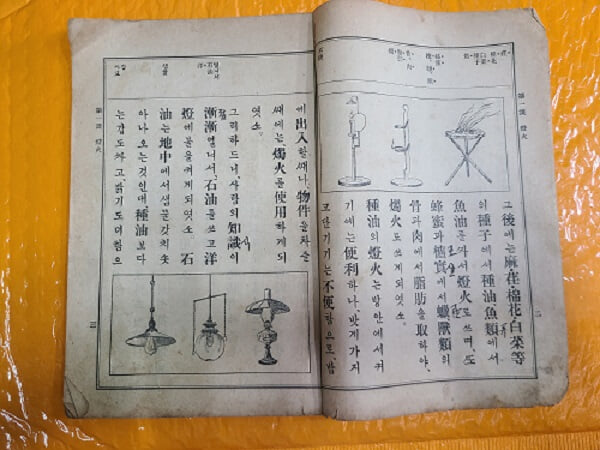 第一課 燈火
二
그後에는麻、荏、棉花、白菜等
의種子에서種油、魚類에서
魚油를짜서燈火로쓰며、또
蜂蜜과 實에서蠟、獸類의
骨과肉에서脂肪을取하야、
燭火로쓰게되엿소。
種油의燈火는방안에서켜
기에는便利하나、밧게가지
고단기기는不便함으로、밤
에出入할때나、物件을차즐
때에는、燭火를使用하게되
엿소。
그리하드니、사람의知識이
漸漸열니여서、石油를쓰고洋
燈에불을켜게되엿소。石
油는地中에서샘물갓치솟
아나오는것인대、種油보다
는갑도싸고밝기도더함으
第一課 燈火
三